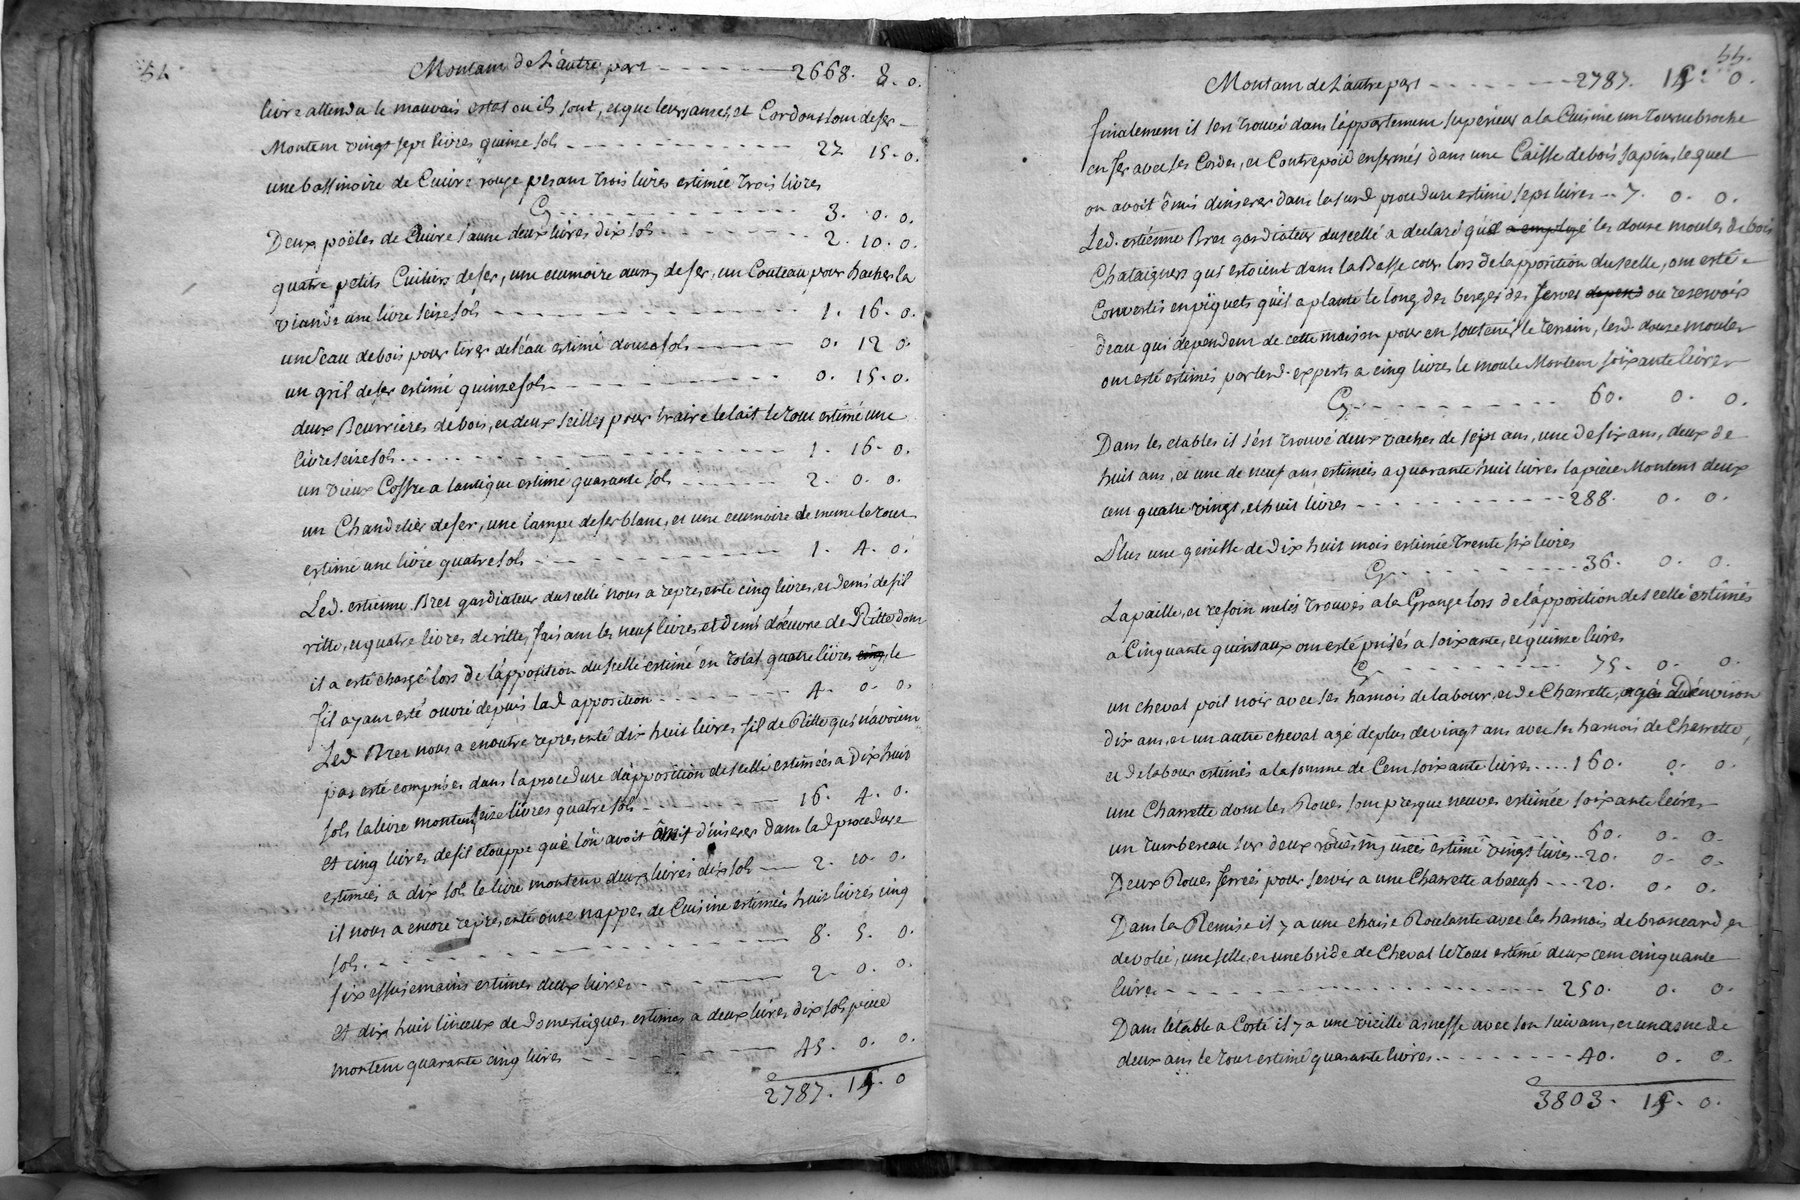 54
Montant de L'autre part - - - - 2668. 8. 0.
livre attendu le mauvais estat ou ils sont, et que leurs anses, et Cordons sont de fer
Montent vingt sept livres quinze sols - - - - 27 15. 0.
une bassinoire de Cuivre rouge pesant trois livres estimée trois livres
Cy - - - - 3. 0. 0.
Deux poëles de Cuivre jaune deux livres dix sols 2. 10. 0.
quatre petits Cuiliers de fer, une ecumoire aussy de fer, un Couteau pour hacher la
viande une livre seize sols - - - - 1. 16. 0.
un Seau de bois pour tirer de l'eau estimé douze sols - - - - 0. 12 0.
un gril de fer estimé quinze sols - - - - 0. 15. 0.
deux Beurrieres de bois, et deux seilles pour traire le lait le tout estimé une
livre seize sols - - - - 1. 16. 0.
un vieux Coffre a lantique estimé quarante sols - - - - 2. 0. 0.
un Chandelier de fer, une lampe de fer blanc, et une ecumoire de meme le tout
estimé une livre quatre sols - - - - 1. 4. 0.
Led. estienne Bret gardiateur du scellé nous a representé cinq livres, et demi de fil
ritte, et quatre livres de ritte, faisant les neuf livres, et demi d'oeuvre de Ritte dont
il a esté chargé lors de l'apposition du scellé estimé en total quatre livres cinq, le
fil ayant esté ouvré depuis lad apposition - - - - 4. 0. 0.
Led. Bret nous a enoutre representé dix huit livres fil de Ritte qui n'avoient
pas esté comprises dans la procedure d'apposition de scellé estimées a Dix huit
sols la livre montent seize livres quatre sols - - - - 16. 4. 0.
et cinq livres de fil etouppe que lon avoit ômit d'inserer dans lad procedure
estimées a dix sols la livre montent deux livres dix sols - - 2. 10. 0.
il nous a encore representé onze nappes de Cuisine estimées huit livres cinq
sols. - - - - 8. 5. 0.
six essuiemains estimés deux livres - - - - 2. 0. 0.
et dix huit linceux de Domestiques estimés a deux livres dix sols piece
montent quarante cinq livres - - - - 45. 0. 0.
2787. 15. 0
55.
Montant de L'autre part - - - - 2787. 15. 0.
finalement il s'est trouvé dans l'appartement superieur a la Cuisine un Tournebroche
en fer avec ses Cordes, et Contrepoid enfermés dans une Caisse de bois sapin, lequel
on avoit ômis d'inserer dans la susd procedure estimé sept livres - - 7. 0. 0.
Led. estienne Bret gardiateur du scellé a declaré qu'il a employé les douze moules de bois
Chataigners qui estoient dans la Basse cour lors de l'apposition du scellé, ont esté
Convertis en piquets qu'il a planté le long des berges des serves depend ou reservoir
d'eau qui dependent de cette maison pour en soutenir le terrain, lesd. douze moules
ont esté estimés par lesd. experts a cinq livres le moule Montent soixante livres
Cy - - - - 60. 0. 0.
Dans les etables il s'est trouvé deux vaches de sept ans, une de six ans, deux de
huit ans, et une de neuf ans estimées a quarante huit livres la piece Montent deux
cent quatre vingt, et huit livres - - - - 288. 0. 0.
Plus une genisse de Dix huit mois estimée trente six livres
Cy - - - - 36. 0. 0.
La paille, et le foin mêlés trouvés a la Grange lors de l'apposition de scellé estimés
a Cinquante quintaux ont esté prisés a soixante, et quinze livres
Cy - - - - 75. 0. 0.
un cheval poil noir avec ses harnois de labour, et de Charrette, agés d'environ
dix ans, et un autre cheval agé de plus de vingt ans avec ses harnois de Charrette,
et de labour estimés a la somme de Cent soixante livres - - - - 160. 0. 0.
une Charrette dont les Roues sont presque neuves estimée soixante livres
- - - - 60. 0. 0.
un tumbereau sur deux roües my usées estimé vingt livres - - 20. 0. 0.
Deux Roues ferrées pour servir a une Charrette a boeufs - - - 20. 0. 0.
Dans la Remise il y a une chaise Roulante avec les harnois de brancard, et
devolée, une selle, et une bride de Cheval le tout estimé deux cent cinquante
livres - - - - 250. 0. 0.
Dans l'etable a Coté il y a une vieille anesse avec son suivant, et un asne de
deux ans le tout estimé quarante livres - - - - 40. 0. 0.
3803. 15. 0.